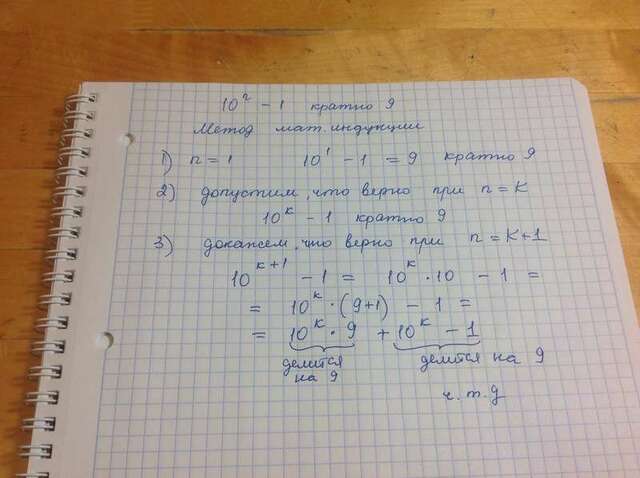 10ⁿ - 1 кратно 9
Метод мат. индукции
1) n = 1 10¹ - 1 = 9 кратно 9
2) допустим, что верно при n = K
10ᴷ - 1 кратно 9
3) докажем, что верно при n = K+1
10ᴷ⁺¹ - 1 = 10ᴷ · 10 - 1 =
= 10ᴷ · (9+1) - 1 =
= 10ᴷ · 9 + 10ᴷ - 1
делится на 9 делится на 9
ч. т. д